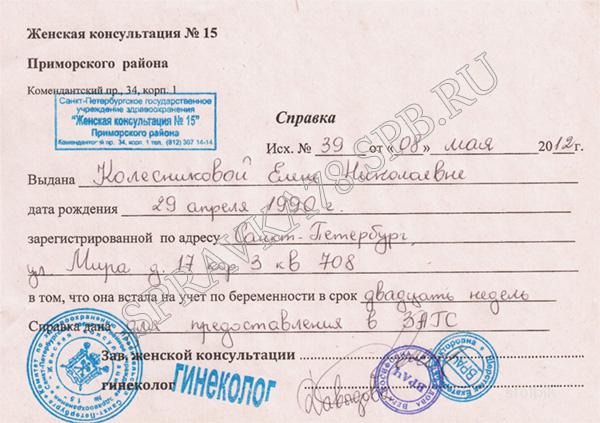 Женская консультация № 15
Приморского района
Комендантский пр., 34, корп. 1
Санкт-Петербургское государственное
учреждение здравоохранения
"Женская консультация № 15"
Приморского района
Комендантский пр. 34, корп. 1 тел. (812) 307 14-14
Справка
Исх. № 39 от «08» мая 2012г.
Выдана Колесниковой Елене Николаевне
дата рождения 29 апреля 1990 г.
зарегистрированной по адресу Санкт-Петербург,
ул Мира д. 17 кор 3 кв 708
в том, что она встала на учет по беременности в срок двадцать недель
Справка дана для предоставления в ЗАГС
Зав. женской консультации
гинеколог ГИНЕКОЛОГ Давыдова
ВРАЧ
ВРАЧ
SPRAVKA78SPB.RU